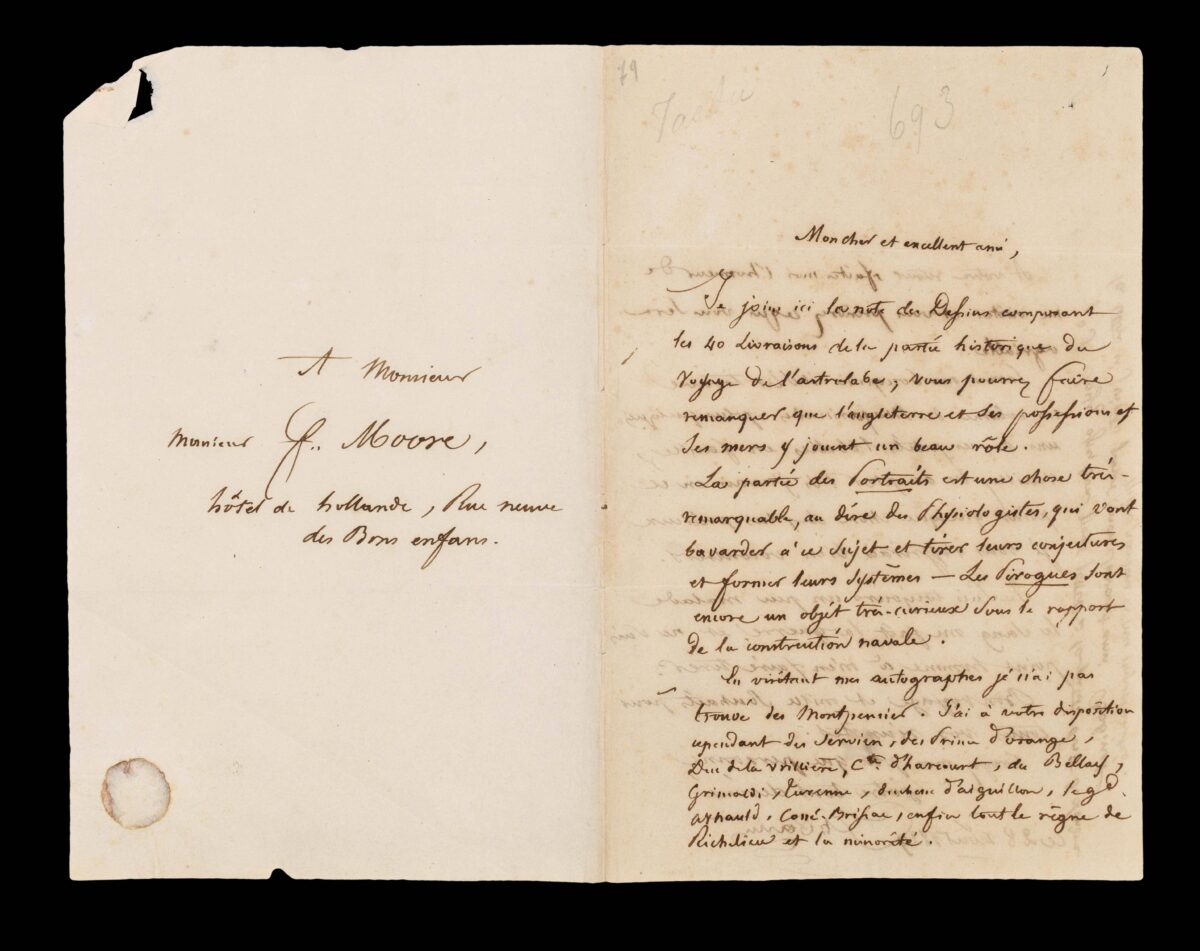 A Monsieur
Monsieur F.. Moore,
hôtel de hollande, Rue neuve
des Bons enfans.
79
Tastu
693
Mon cher et excellent ami,
Je joins ici la note des Dessins composant
les 40 Livraisons de la partie historique du
Voyage de l'astrolabe, vous pourrez faire
remarquer que l'angleterre et ses possessions et
ses mers y jouent un beau rôle.
La partie des Portraits est une chose très-
remarquable, au dire des Physiologistes, qui vont
bavarder à ce sujet et tirer leurs conjectures
et former leurs systêmes — Les Pirogues sont
encore un objét très-curieux sous le rapport
de la construction navale.
En visitant mes autographes je n'ai pas
trouvé des Montpensier. J'ai à votre disposition
cependant des Servien, des Prince d'orange,
Duc de la Vrilliere, Cte. d'harcourt, du Bellay,
Grimaldi, Turenne, duchesse d'aiguillon, le gd.
arnauld, Cossé-Brissac, enfin tout le règne de
Richelieu et la minorité.